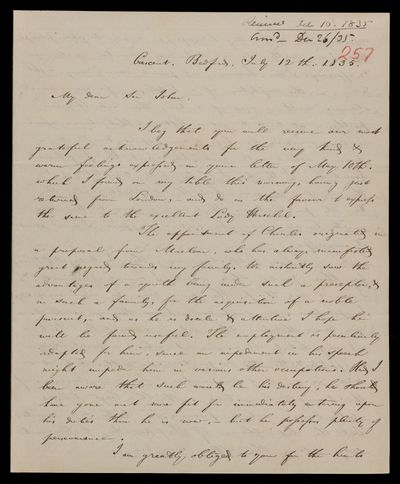 Received Oct 10. 1835
Ansd. Dec 26/35
257
Crescent. Bedford. July 12th. 1835.
My dear Sir John,
I beg that you will receive our most
grateful acknowledgements for the very kind &
warm feelings expressed in your letter of May 10th.
which I found on my table this morning, having just
returned from London; and do us the favour to express
the same to the excellent Lady Herschel.
The appointment of Charles originated in
a proposal from Maclear, who has always manifested
great regard towards my family. We instantly saw the
advantages of a youth being under such a preceptor, &
in such a family, for the acquisition of a noble
pursuit, and as he is docile & attentive I hope he
will be found useful. The employment is peculiarly
adapted for him, since an impediment in his speech
might impede him in various other occupations. Had I
been aware that such would be his destiny, he should
have gone out more fit for immediately entering upon
his duties than he is now, – but he possesses plenty of
perseverance.
I am greatly obliged to you for the hints